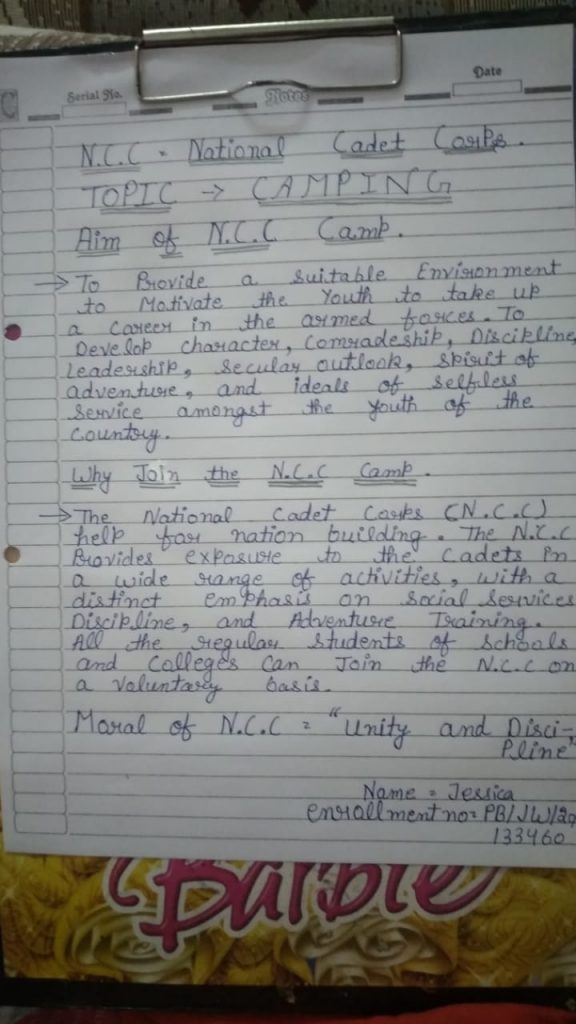 Serial No.
Notes
Date
N.C.C - National Cadet Corps.
TOPIC → CAMPING
Aim of N.C.C Camp.
→ To Provide a suitable Environment
to Motivate the Youth to take up
a career in the armed forces. To
Develop character, Comradeship, Discipline,
Leadership, secular outlook, spirit of
adventure, and ideals of selfless
Service amongst the youth of the
Country.
Why Join the N.C.C Camp.
→ The National Cadet Corps (N.C.C)
help for nation building. The N.C.C
Provides exposure to the Cadets in
a wide range of activities, with a
distinct emphasis on Social Services
Discipline, and Adventure Training.
All the regular Students of Schools
and Colleges Can Join the N.C.C on
a voluntary basis.
Moral of N.C.C = "Unity and Disci-
Pline"
Name = Jessica
enrollment no = PB/JW/20
133460
Barbie